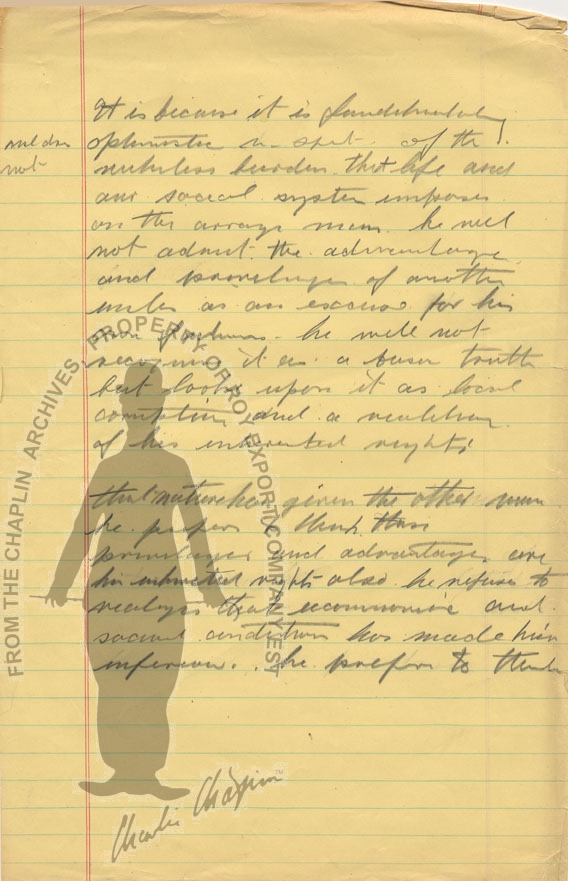 It is because it is fundamentally
optimistic in spite of the
not
ruthless burden that life and
our social system imposes
on the average man he will
not admit the advantage
and privileges of another
as an excuse for his
own he will not
recognise it as a truth
but looks upon it as local
corruption and a
of his inherited rights
that nature has given the other man
he prefers to think those
privileges and advantages are
his inherited rights also he refuses to
realize that economic and
social condition has made him
inferior. he prefers to think
FROM THE CHAPLIN ARCHIVES, PROPERTY OF ROY EXPORT COMPANY EST
Charlie Chaplin™